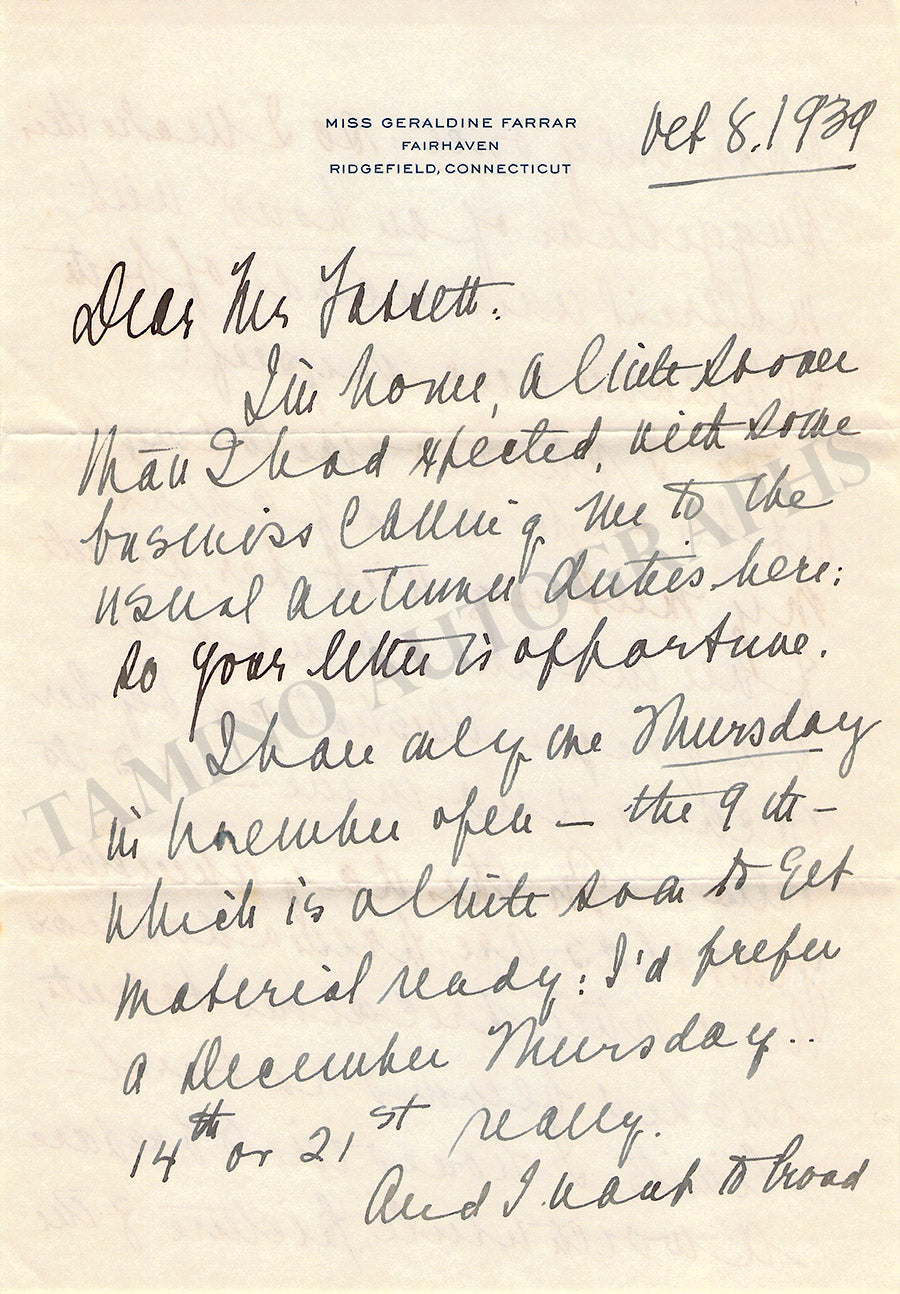 MISS GERALDINE FARRAR
FAIRHAVEN
RIDGEFIELD, CONNECTICUT
Oct 8. 1939
Dear Mr Fassett:
I'm home, a little sooner
than I had expected, with some
business calling me to the
usual autumn duties here:
so your letter is opportune.
I have only one Thursday
in November open — the 9th —
which is a little soon to get
material ready: I'd prefer
a December Thursday..
14th or 21st really.
And I want to broad
TAMINO AUTOGRAPHS